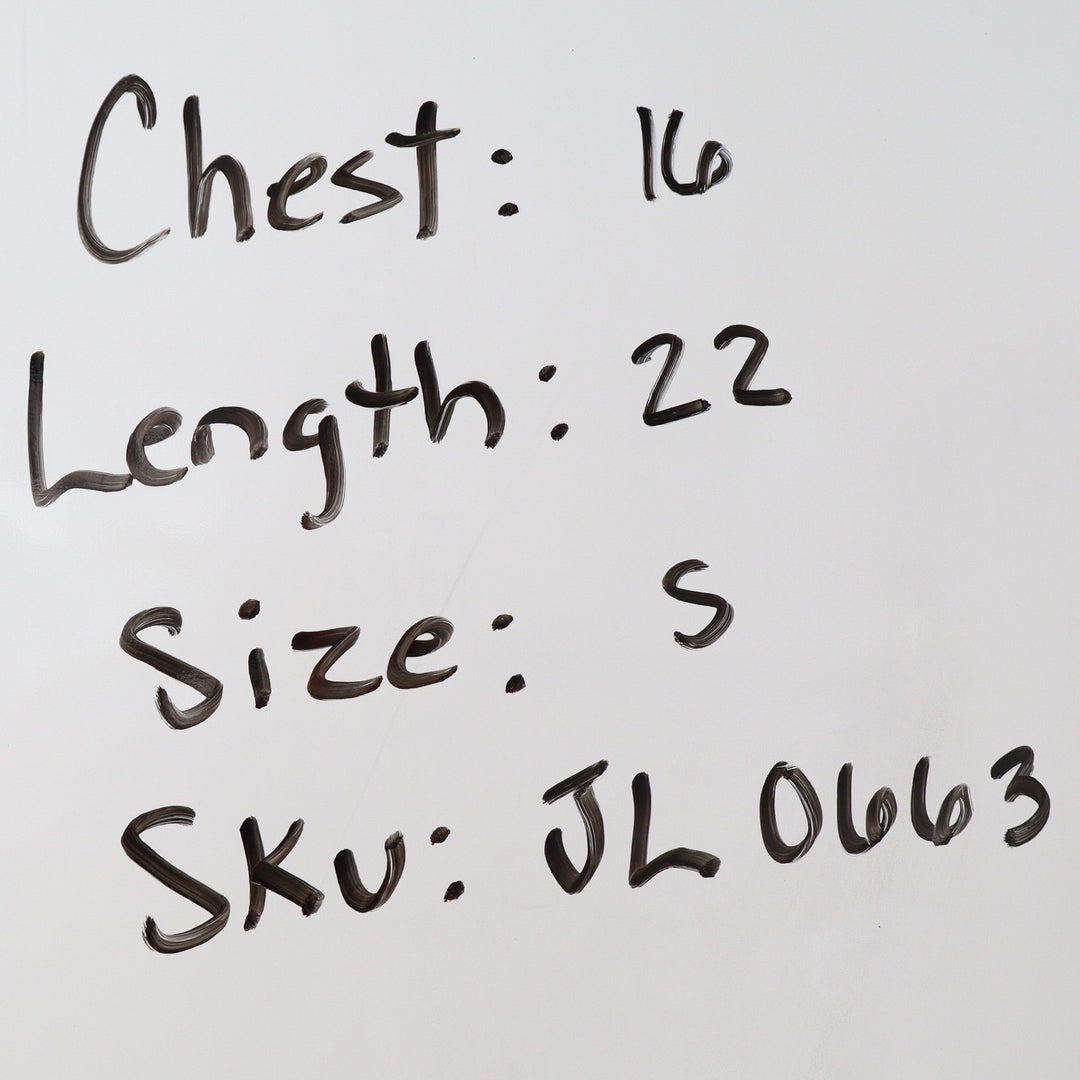 Chest: 16
Length: 22
Size: S
SKu: JL 0663